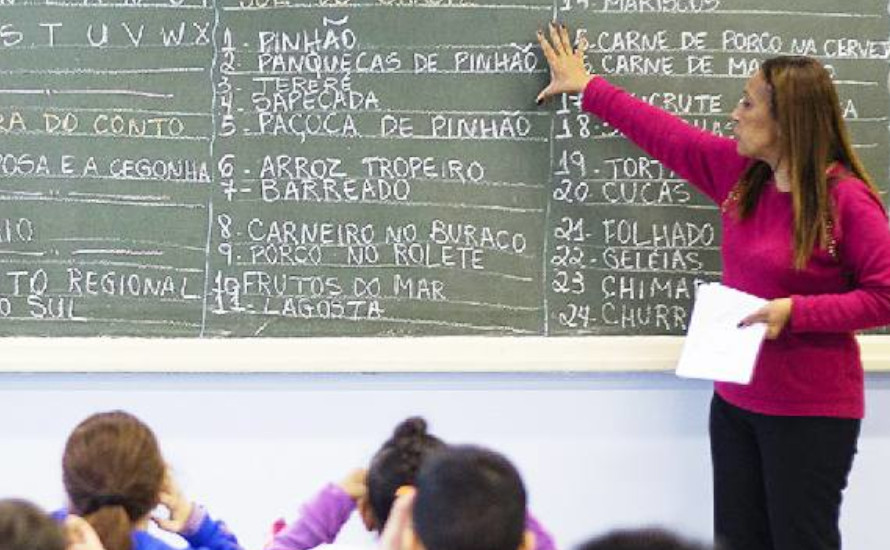 S T U V W X
RA DO CONTO
POSA E A CEGONHA
TO REGIONAL
O SUL
1- PINHÃO
2- PANQUECAS DE PINHÃO
3- TERERÉ
4- SAPECADA
5- PAÇOCA DE PINHÃO
6- ARROZ TROPEIRO
7- BARREADO
8- CARNEIRO NO BURACO
9- PORCO NO ROLETE
10- FRUTOS DO MAR
11- LAGOSTA
MARISCOS
CARNE DE PORCO NA CERVEJ
CARNE DE
17-
18-
19- TORT
20- CUCAS
21- FOLHADO
22- GELÉIAS
23 CHIMA
24- CHURR